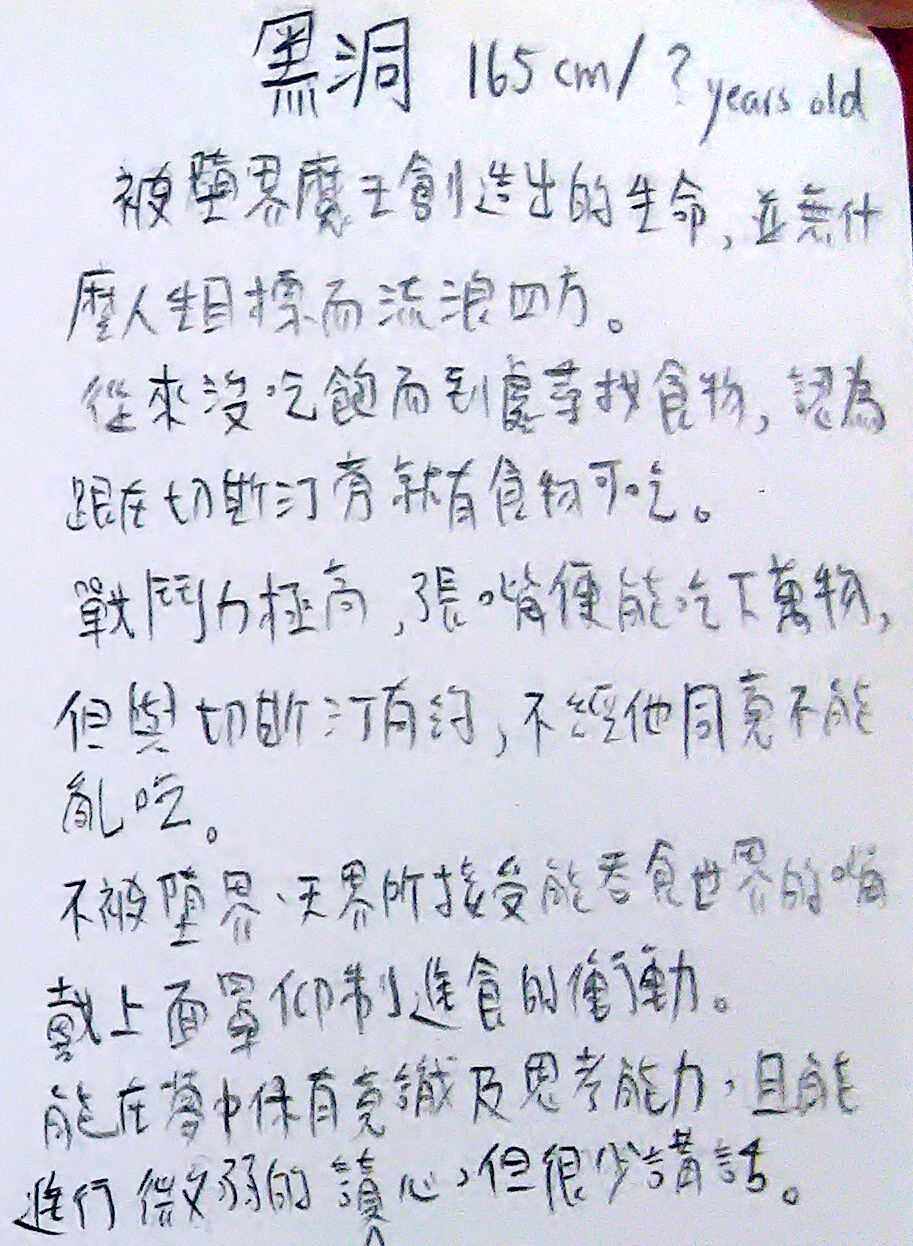 黑洞 165cm/?years old
被墮界魔王創造出的生命,並無什
麼人生目標而流浪四方。
從來沒吃飽而到處尋找食物,認為
跟在切斯汀旁就有食物可吃。
戰鬥力極高,張嘴便能吃下萬物,
但與切斯汀有約,不經他同意不能
亂吃。
不被墮界、天界所接受能吞食世界的嘴
戴上面罩仰制進食的衝動。
能在夢中保有意識及思考能力,且能
進行微弱的讀心,但很少講話。